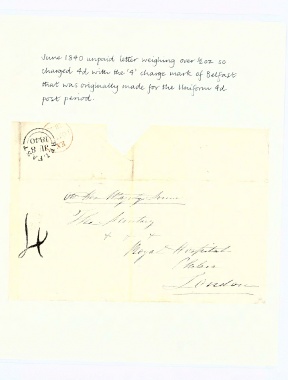 June 1840 unpaid letter weighing over ½ oz so
charged 4d with the '4' charge mark of Belfast
that was originally made for the Uniform 4d
post period.
BELFAST
1840
4
The Secretary
Royal Hospital
Chelsea
London